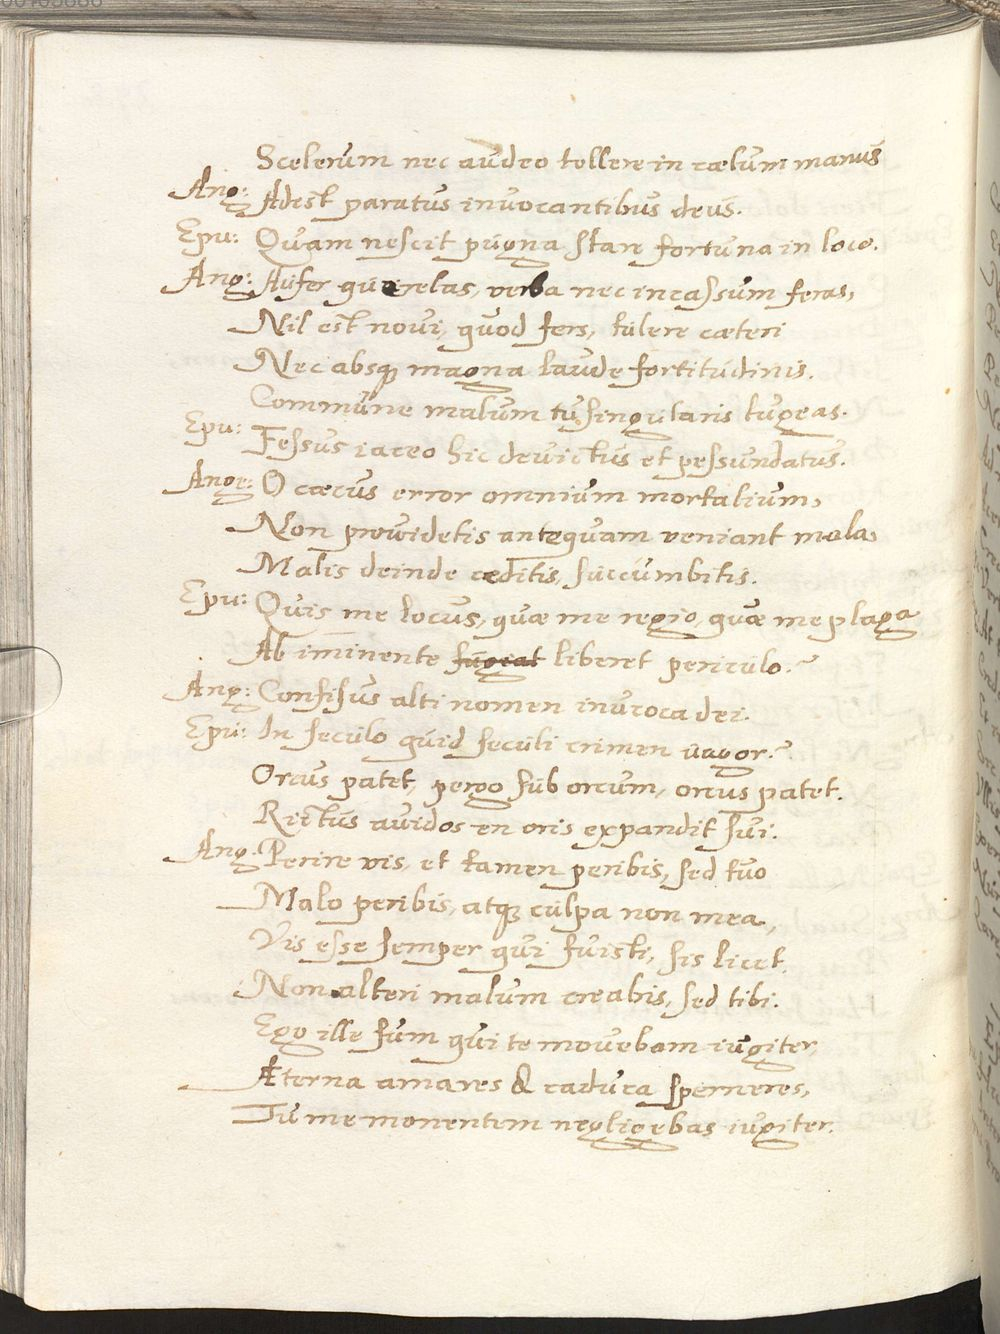 Scelerum nec audeo tollere in cælum manus
Ang: Adest paratus invocantibus deus.
Epu: Quam nescit pugna stare fortuna in loco.
Ang: Aufer querelas, verba nec incassum feras,
Nil est novi, quod fers, tulere cæteri
Nec absq magna laude fortitudinis.
Commune malum tu singularis lugeas.
Epu: Fessus iaceo hic devictus et pessundatus.
Ange: O cæcus error omnium mortalium,
Non providetis antequam veniant mala,
Malis deinde ceditis, succumbitis.
Epu: Quis me locus, quæ me regio, quæ me plaga
Ab iminente fugeat liberet periculo?
Ang: Confisus alti nomen invoca dei.
Epu: In seculo quid seculi crimen vagor?
Orcus patet, pergo sub orcum, orcus patet.
Rictus avidos en oris expandit sui.
Ang: Perire vis, et tamen peribis, sed tuo
Malo peribis, atq culpa non mea,
Vis esse semper qui fuisti, sis licet.
Non alteri malum creabis, sed tibi.
Ego ille sum qui te movebam iugiter,
Æterna amares & caduca sperneres,
Tu me monentem negligebas iugiter.